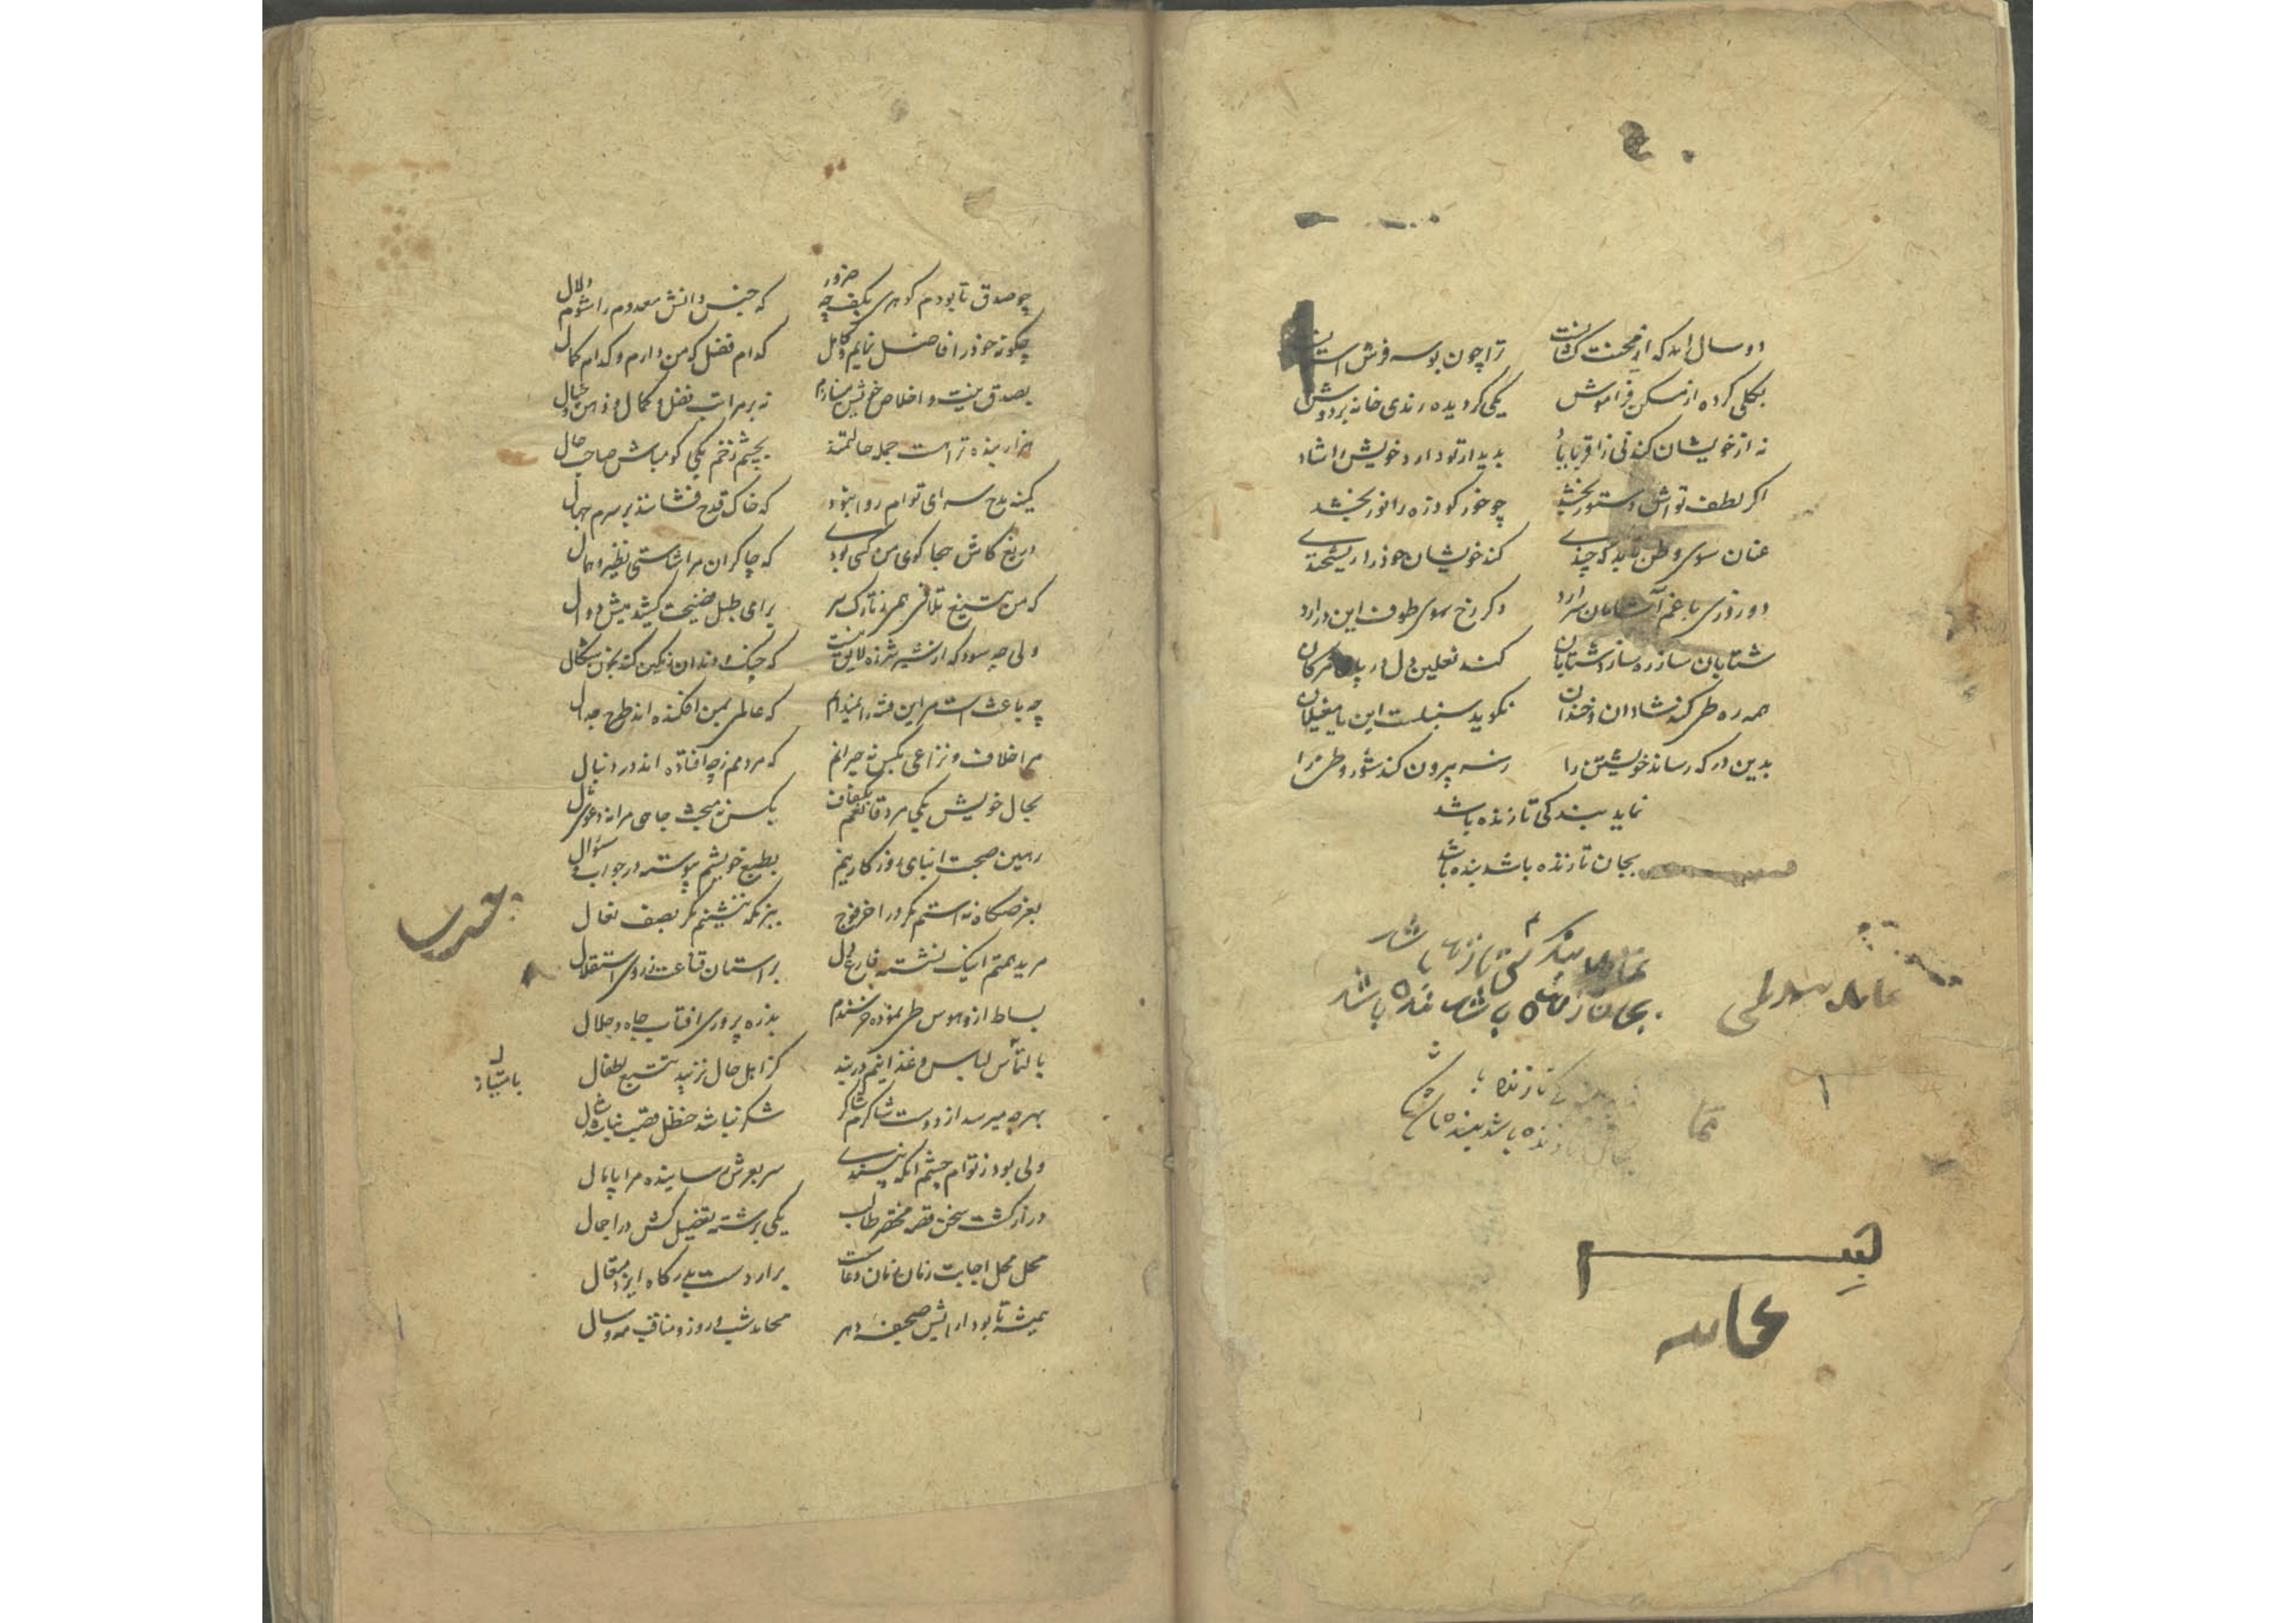 دو سال آمد که از محنت
ترا چون بوسه فرش آستانست
بکلی کرده از مسکن فراموش
یکی گردیده رندی خانه بردوش
نه از خویشان کند نی زاقربا یاد
بدیدار تو دارد خویش را شاد
اگر لطف تواش دستور بخشد
چو خور کو ذره را نور بخشد
عنان سوی وطن تابد که چندی
کند خویشان خود را ریشخندی
دو روزی با غم آنسامان سر آرد
دگر رخ سوی طوف این در آرد
شتابان سازره سازد شتابان
کند نعلین دل در پای مژگان
همه ره طی کند شادان و خندان
نگوید سنبلست این یا مغیلان
بدین درگه رساند خویشتن را
ز سر بیرون کند شور وطن را
نماید بندگی تا زنده باشد
بجان تا زنده باشد بنده باشد
نماید بندگی تا زنده باشد
بجان تا زنده باشد بنده باشد
تا زنده با
تا زنده باشد بنده باش
نما
چو صدق تا بودم گوهری بکف چه ضرور
که جنس دانش معدوم را شوم دلال
چگونه خود را فاضل نمایم و کامل
کدام فضل که من دارم و کدام کمال
بصدق نیت و اخلاص خویش مینازم
نه بر مراتب فضل و کمال و ذهن و خیال
هزار بنده تراست جمله حالتمند
بچشم زخم یکی گو مباش صاحب حال
کمینه مدح سرای توام روا نبود
که خاک قدح فشانند بر سرم جهال
دریغ کاش هجا گوی من کسی بودی
که چاکران مرا شاستی نظیر و همال
که من بتیغ تلافی همی ز تارک سر
برای طبل فضیحت کشیدمیش دوال
ولی چه سود که از شیر شرزه لایق نیست
که چنگ و دندان رنگین کند بخون شکال
چه باعث است مر این فتنه را نمیدانم
که عالمی بمن افکنده اند طرح جدال
مرا خلاف و نزاعی بکس نه حیرانم
که مردمم ز چه افتاده اند در دنبال
بحال خویش یکی مرد قانعم بکفاف
بکس نه مبحث جاهی مرا نه دعوی مال
رهین صحبت ابنای روزگار نیم
بطبع خویشم پیوسته در جواب و سؤال
بعرصگاه نه استم مگر در آخر فوج
ببزمگه ننشینم مگر بصف نعال
مرید همتم اینک نشسته فارغ دل
بر آستان قناعت ز روی استقلال
بساط آز و هوس طی نموده خرسندم
بذره پروری آفتاب جاه و جلال
بالتماس لباس و غذا نیم در بند
کز اهل حال نزیبد تتبع اطفال
بهرچه میرسد از دوست شاکرم شاکر
شکر نباشد حنظل قصب نباشد شال
ولی بود ز توام چشم آنکه نپسندی
سر بعرش ساینده مرا پامال
دراز گشت سخن قصه مختصر طالب
یکی برشته تفضیل کش در اجمال
محل محل اجابت زمان زمان دعاست
برآر دست بدرگاه ایزد متعال
همیشه تا بود آرایش صحیفه دهر
محامد شب و روز و مناقب مه و سال